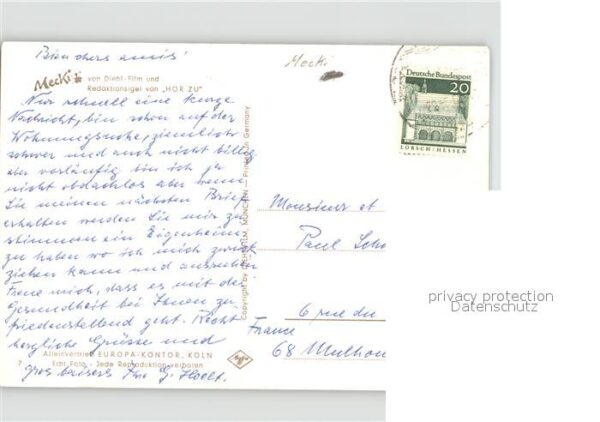 Bien chers amis!
Mecki
Mecki von Diehl-Film und
Redaktionsigel von „HÖR ZU"
Deutsche Bundespost
20
LORSCH · HESSEN
Nur schnell eine kurze
Nachricht, bin schon auf der
Wohnungssuche, ziemlich
schwer und auch nicht billig
aber vorläufig bin ich ja
nicht obdachlos aber wenn
Sie meinen nächsten Brief
erhalten werden Sie mir zu
stimmen ein Eigenheim
zu haben wo ich mich zurück
ziehen kann und ausruhen
Freue mich, dass es mit der
Gesundheit bei Ihnen zu
friedenstellend geht. Recht
herzliche Grüsse und
gros baisers Ihre G.
Copyright by DIEHL-FILM, MÜNCHEN — Printed in Germany
Monsieur et
Paul
6 rue du
France
68 Mulhou
Alleinvertrieb EUROPA-KONTOR, KÖLN
7 Echt Foto - Jede Reproduktion verboten
privacy protection
Datenschutz